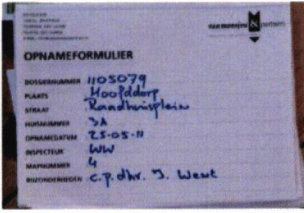 OPNAMEFORMULIER
DOSSIERNUMMER 1105079
PLAATS Hoofddorp
STRAAT Raadhuisplein
HUISNUMMER 3A
OPNAMEDATUM 25-05-11
INSPECTEUR WW
MAPNUMMER 4
BIJZONDERHEDEN c.p. dhr. J. Went